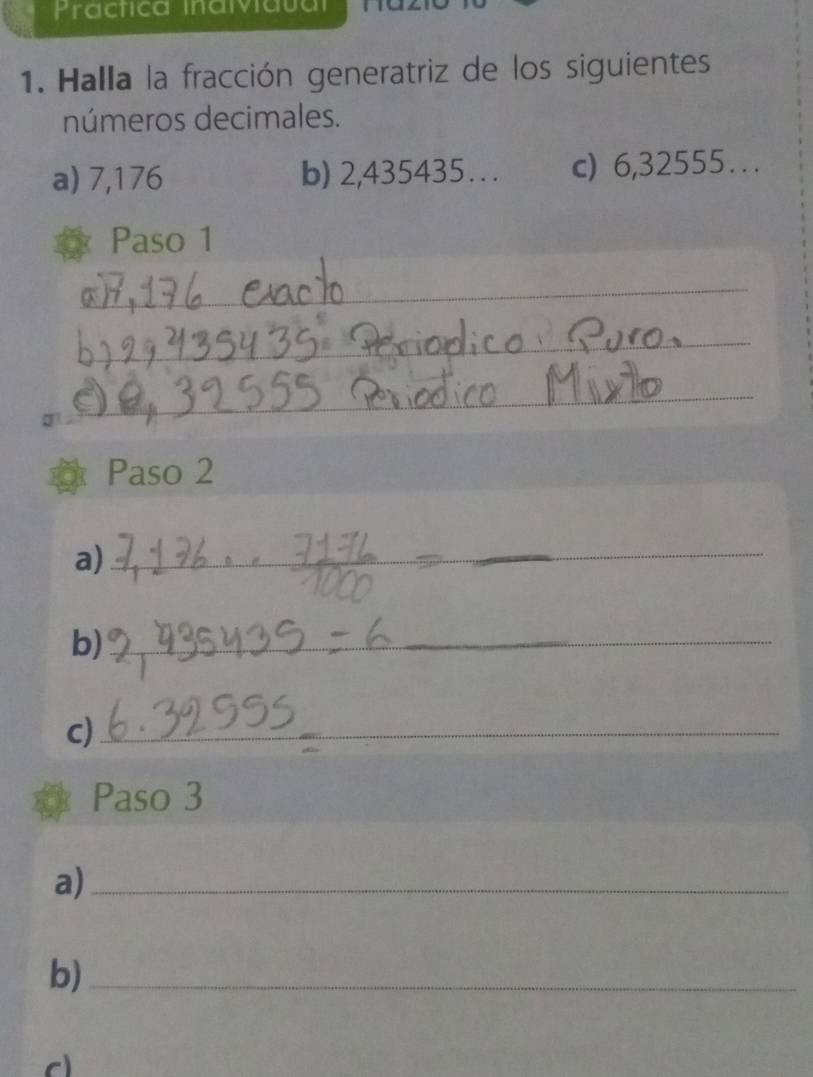 Práctica individual
1. Halla la fracción generatriz de los siguientes
números decimales.
a) 7,176 b) 2,435435... c) 6,32555...
Paso 1
a) 7,176 exacto
b) 2,435435 Periodico Puro.
c) 6,32555 Periodico Mixto
Paso 2
a) 7,176.. 7176/1000 =
b) 2,435435 = 6
c) 6.32555 =
Paso 3
a)
b)
c)